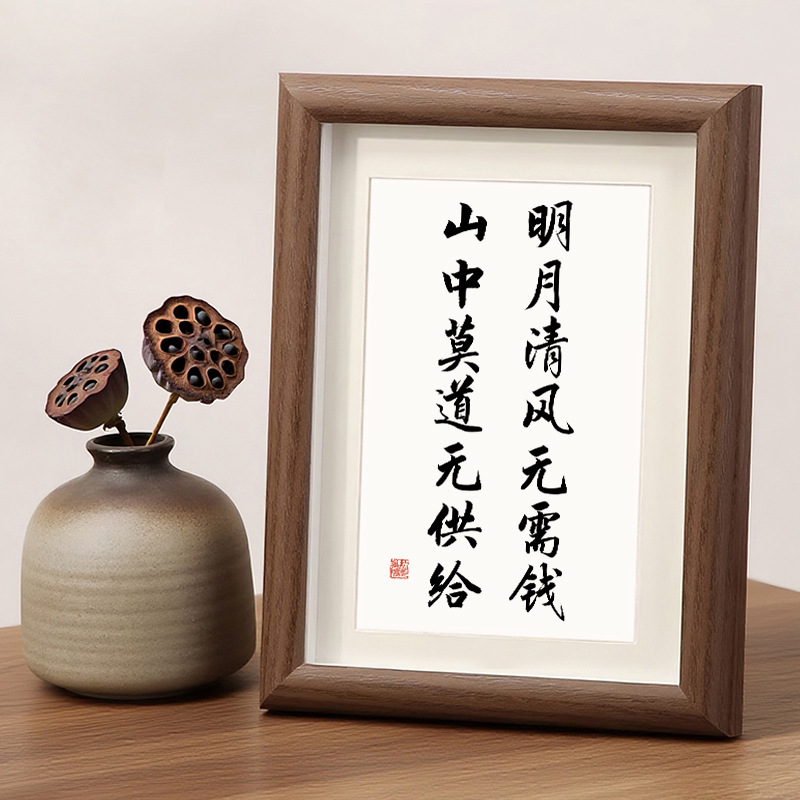 明月清风无需钱
山中莫道无供给